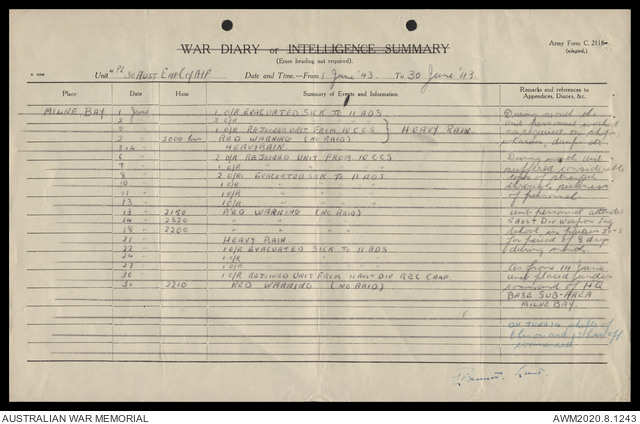 WAR DIARY or INTELLIGENCE SUMMARY
Army Form C. 2118
(adapted).
(Erase heading not required).
Unit 30 AUST AIF Date and Time—From 1 June '43 To 30 June '43
Place Date Hour Summary of Events and Information Remarks and references to
Appendices, Diaries, &c.
MILNE BAY 1 June 1 O/R EVACUATED SICK TO 11 ADS
2 " 2 O/R " " "
1 O/R REJOINED UNIT FROM 10 CCS HEAVY RAIN
2000 hrs RED WARNING (NO RAID)
HEAVY RAIN
6 " 2 O/R REJOINED UNIT FROM 10 CCS
7 " 1 O/R " "
8 " 2 O/R EVACUATED SICK TO 11 ADS
10 " 1 O/R " "
11 " 1 O/R " "
13 " 1 O/R " "
13 " 2150 RED WARNING (NO RAID)
14 " 2320 " "
18 " 2200 " "
21 " HEAVY RAIN
22 " 1 O/R EVACUATED SICK TO 11 ADS
1 O/R " "
1 O/R " "
30 " 1 O/R REJOINED UNIT FROM 11 AUST DIV REC CAMP
30 " 2210 RED WARNING (NO RAID)
During month
unit personnel
as required on ships
wharves, dumps etc.
During month unit
suffered considerable
loss of strength
through sickness
of personnel
unit personnel attended
5 AUST DIV Weapon Trg
School in parties
for period of 8 days
during month.
As from 14 June
unit placed under
command of HQ
BASE SUB-AREA
MILNE BAY.
ON JUNE 14
Lieut.
AUSTRALIAN WAR MEMORIAL
AWM2020.8.1243